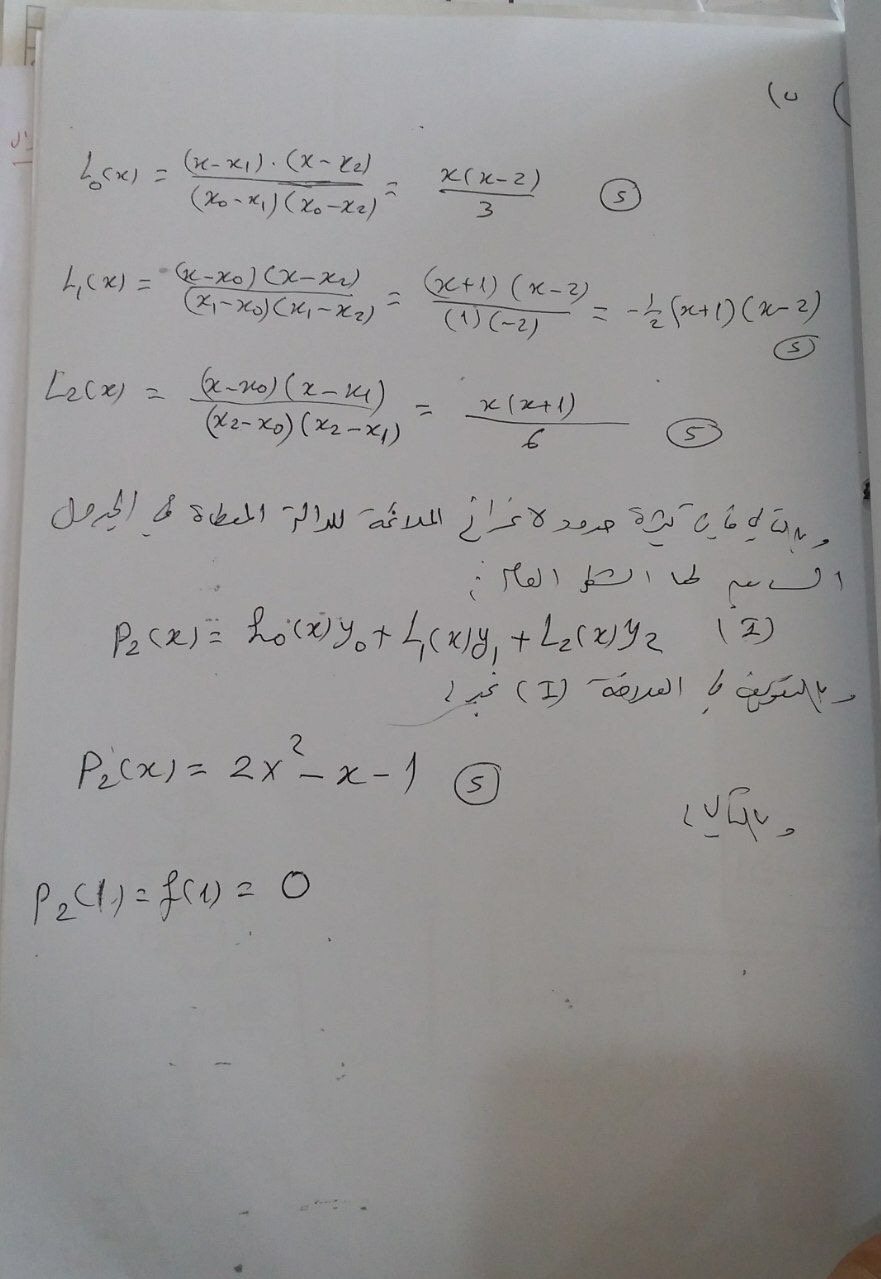 ب)
L₀(x) = (x-x₁)·(x-x₂) / (x₀-x₁)(x₀-x₂) = x(x-2) / 3 (5)
L₁(x) = (x-x₀)(x-x₂) / (x₁-x₀)(x₁-x₂) = (x+1)(x-2) / (1)(-2) = -½(x+1)(x-2) (5)
L₂(x) = (x-x₀)(x-x₁) / (x₂-x₀)(x₂-x₁) = x(x+1) / 6 (5)
وبالتالي فإن كثيرة حدود لاغرانج الملائمة للدالة المعطاة في الجدول
لها الشكل العام:
P₂(x) = L₀(x)y₀ + L₁(x)y₁ + L₂(x)y₂ (I)
وبالتعويض في العلاقة (I) نجد
P₂(x) = 2x² - x - 1 (5)
وبالتالي
P₂(1) = f(1) = 0